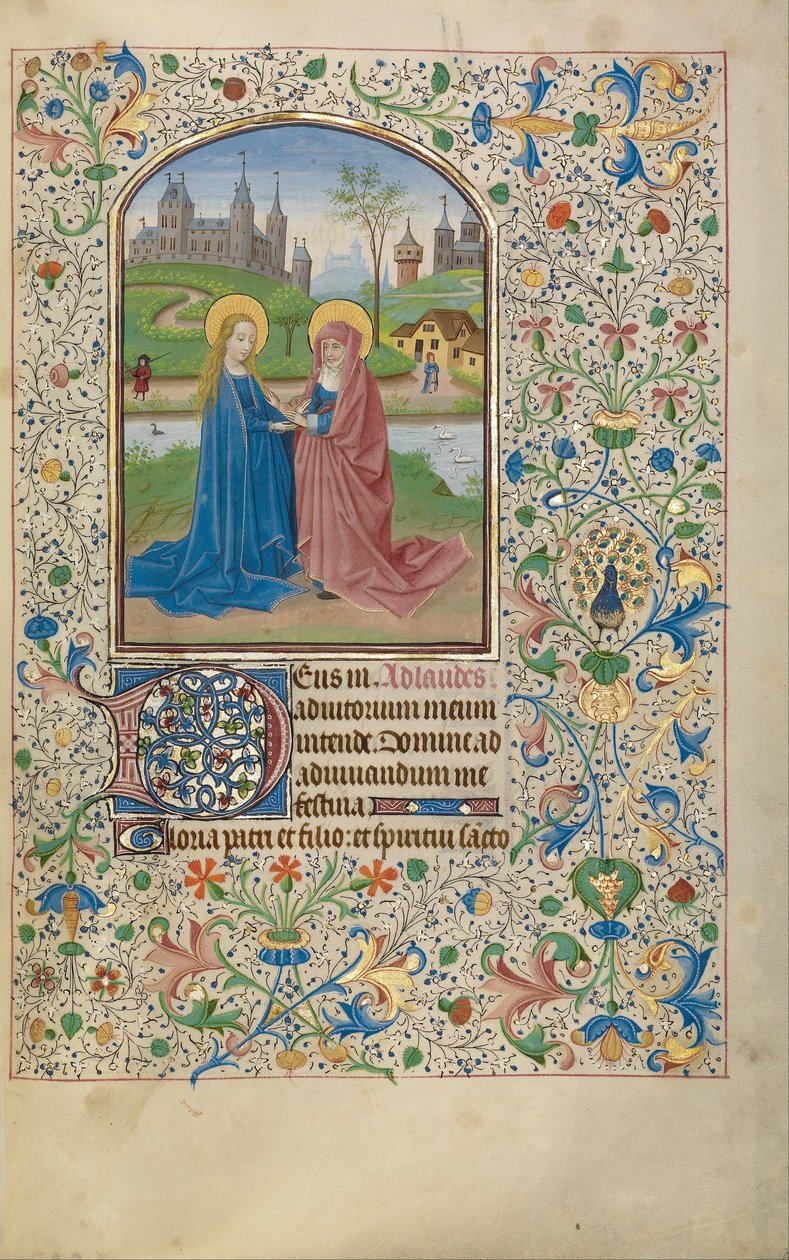 Deus in. Ad laudes.
adiutorium meum
intende. Domine ad
adiuuandum me
festina
Gloria patri et filio: et spiritui sācto